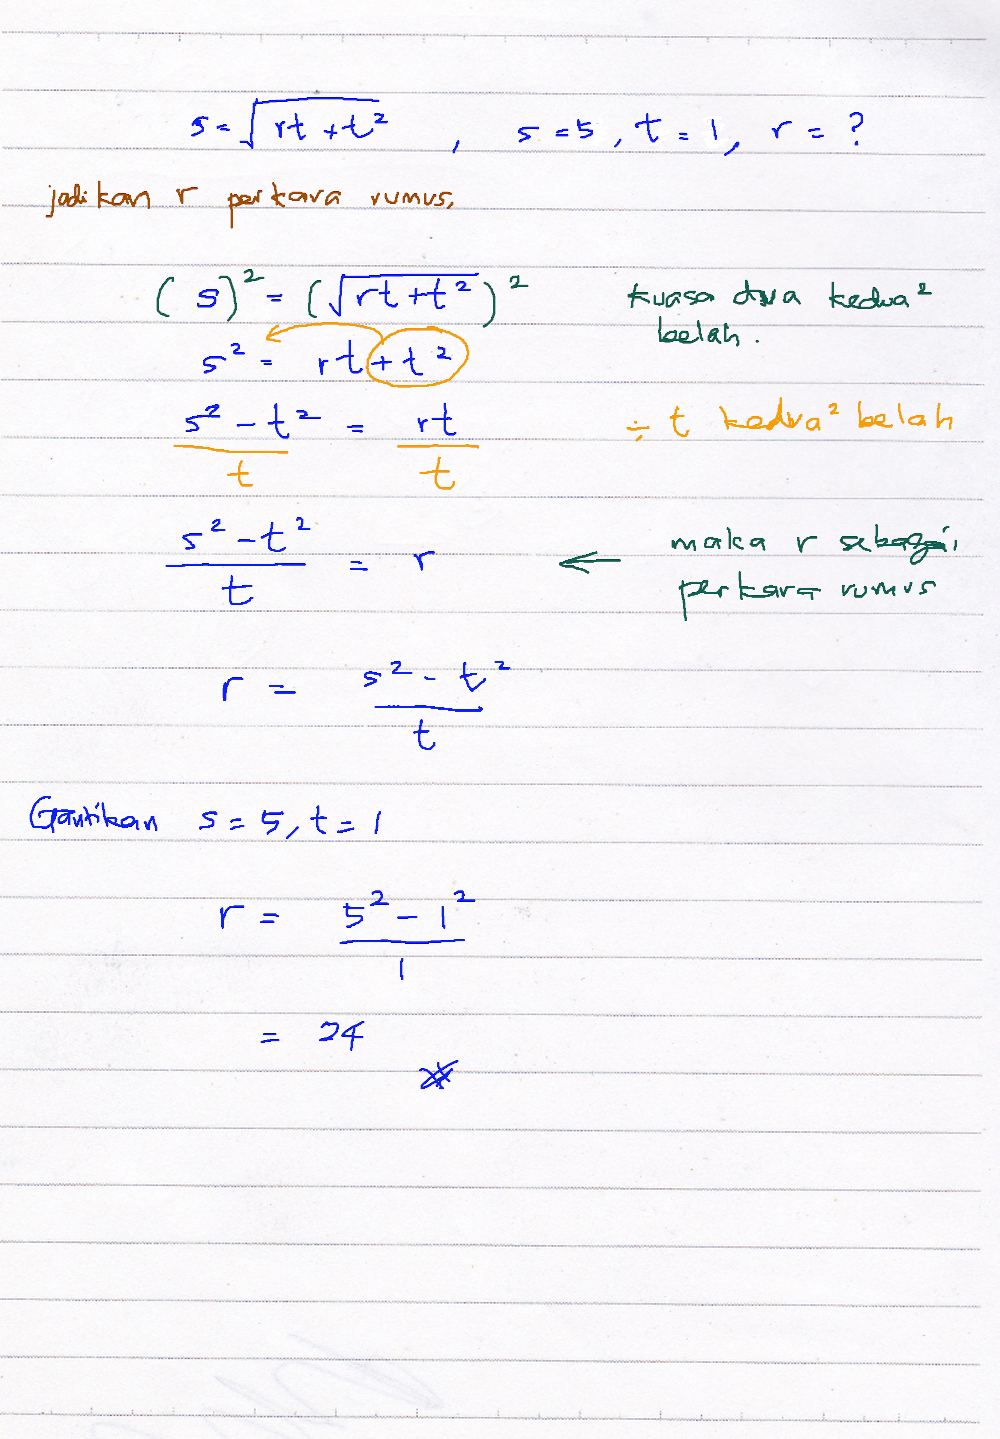 s = √(rt + t²) , s = 5 , t = 1 , r = ?
jadikan r perkara rumus,
( s )² = ( √(rt + t²) )² kuasa dua kedua² belah.
s² = rt + t²
(s² - t²)/t = rt/t ÷ t kedua² belah
(s² - t²)/t = r ← maka r sebagai perkara rumus
r = (s² - t²)/t
Gantikan s = 5, t = 1
r = (5² - 1²)/1
= 24